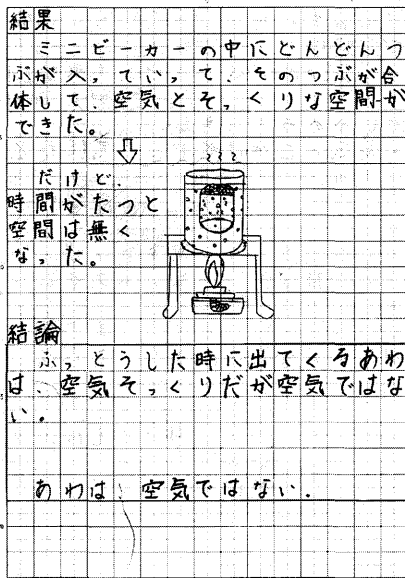 結果
ミニビーカーの中にどんどんつ
ぶが入っていって、そのつぶが合
体して、空気とそっくりな空間が
できた。
⇩
だけど、
時間がたつと
空間は無く
なった。
結論
ふっとうした時に出てくるあわ
は、空気そっくりだが空気ではな
い。
あわは、空気ではない.